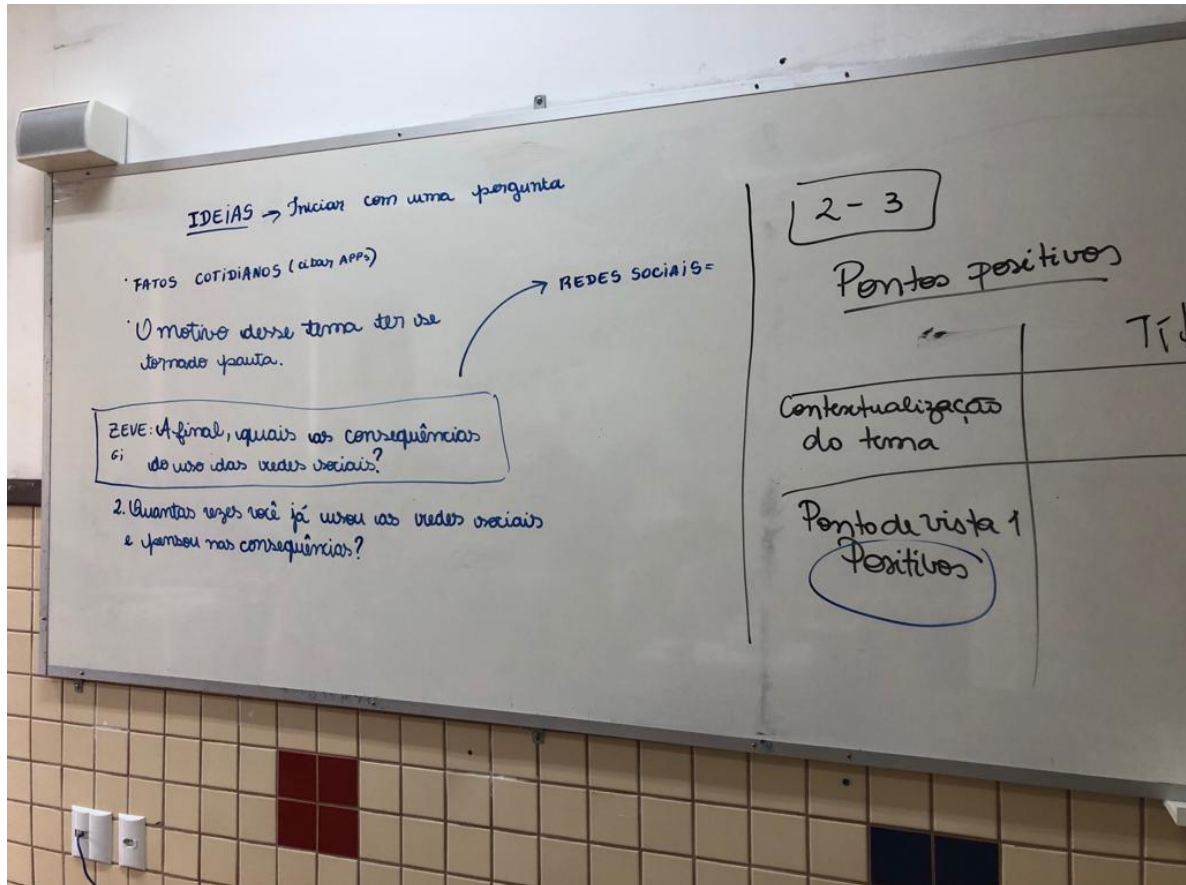 IDEIAS → Iniciar com uma pergunta
· FATOS COTIDIANOS (citar APPs)
· O motivo desse tema ter se
tornado pauta.
→ REDES SOCIAIS=
ZEVE: Afinal, quais as consequências
Gi do uso das redes sociais?
2. Quantas vezes você já usou as redes sociais
e pensou nas consequências?
2 - 3
Pontos positivos
Contextualização
do tema
Ponto de vista 1
Positivos